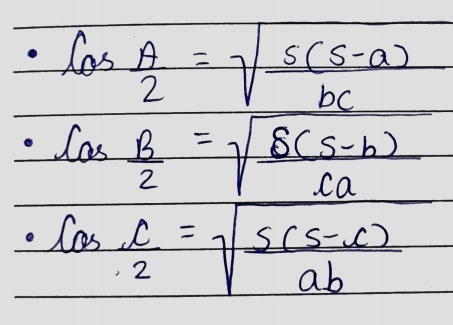 • Cos A/2 = √(s(s-a)/bc)
• Cos B/2 = √(s(s-b)/ca)
• Cos C/2 = √(s(s-c)/ab)